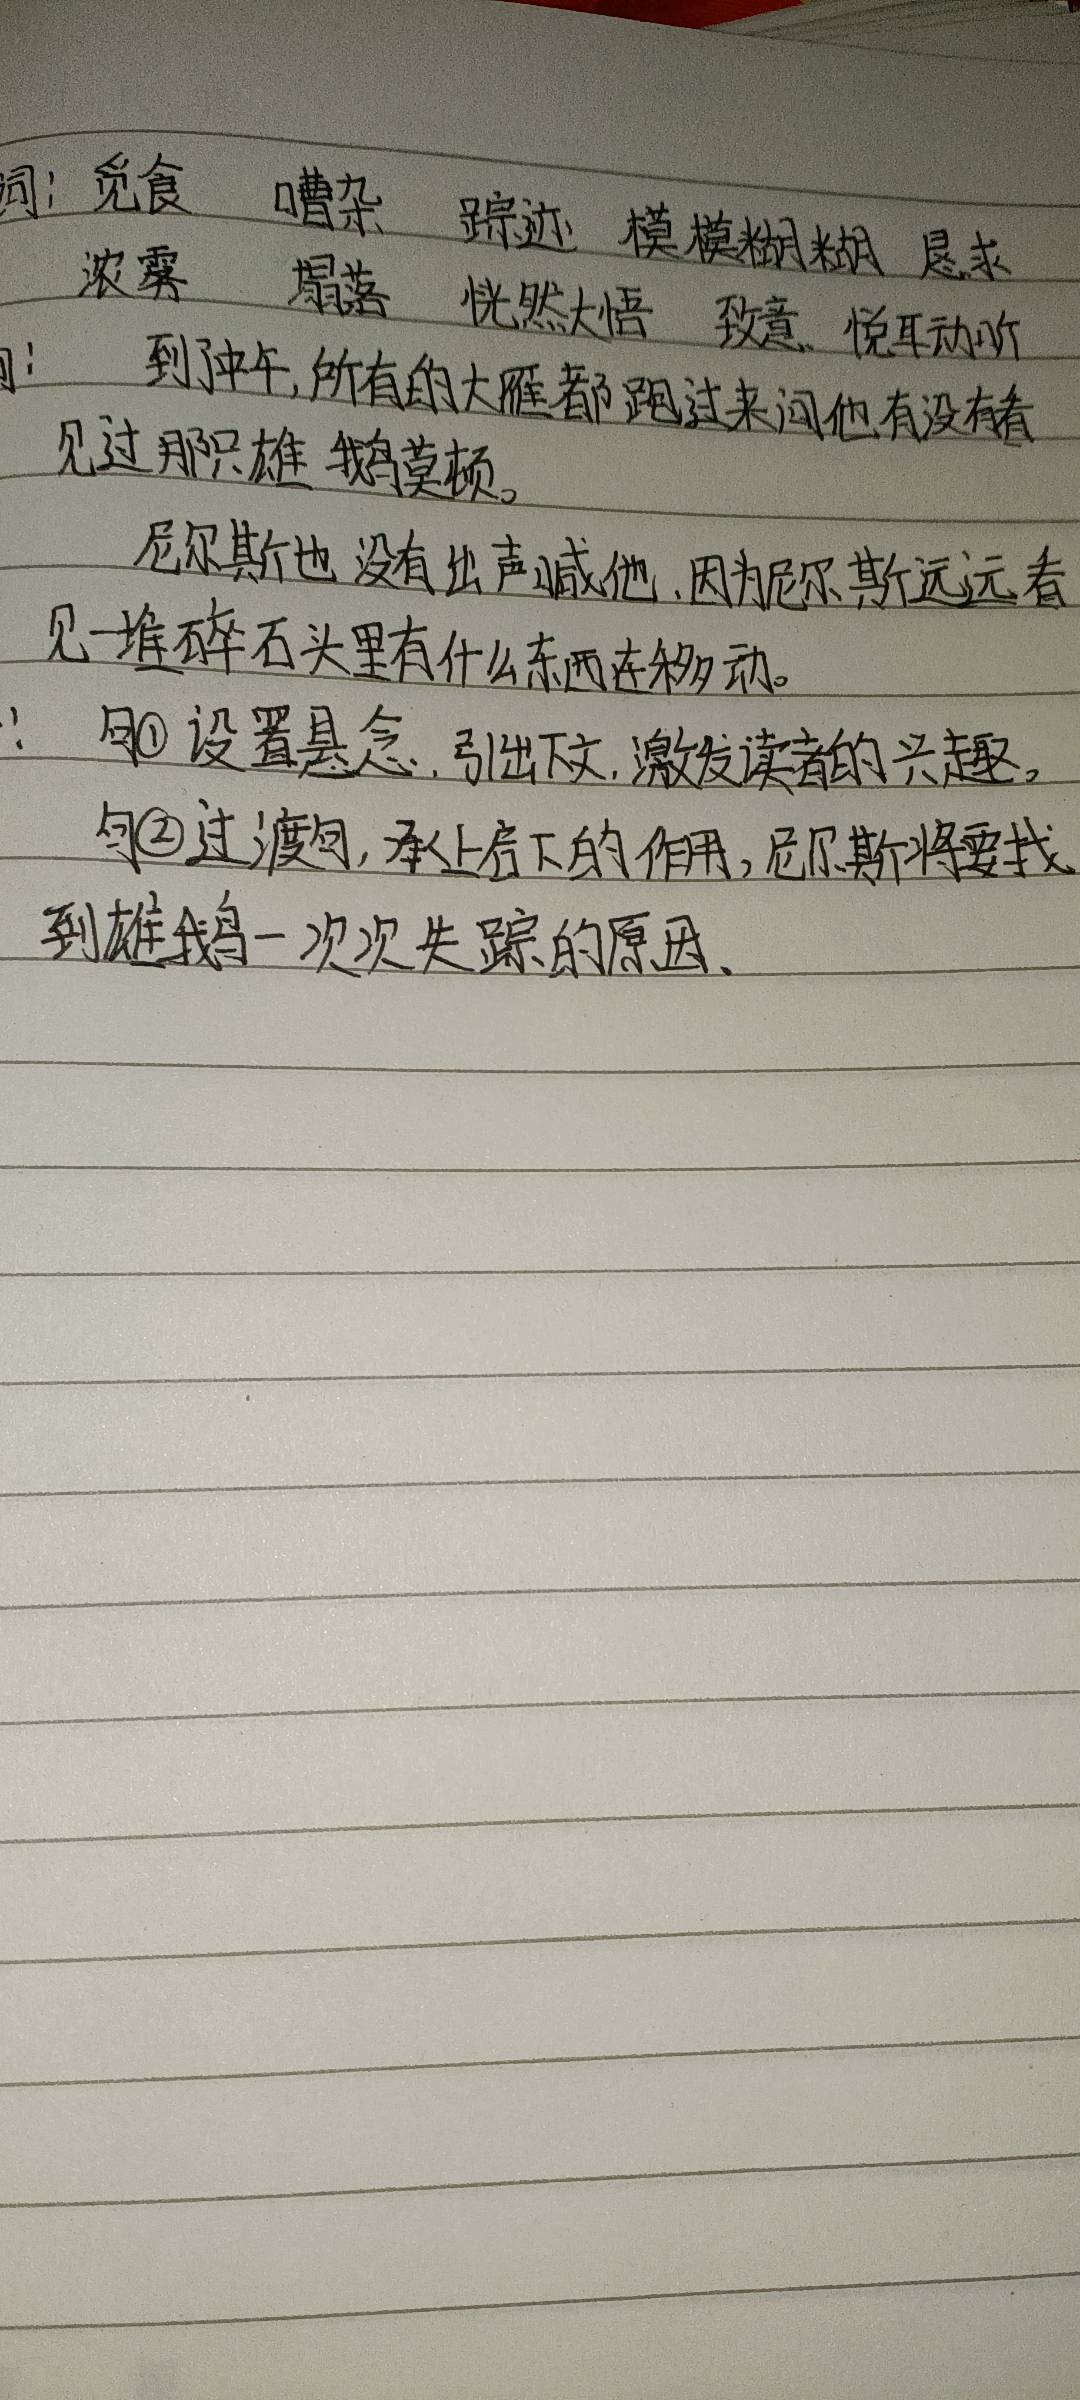 词：觅食 嘈杂 踪迹 模模糊糊 恳求
浓雾 塌落 恍然大悟 致意 悦耳动听
句： 到了中午,所有的大雁都跑过来问他有没有看
见过那只雄鹅莫顿。
尼尔斯也没有出声喊他,因为尼尔斯远远看
见一堆碎石头里有什么东西在移动。
： 句①设置悬念,引出下文,激发读者的兴趣。
句②过渡句,承上启下的作用,尼尔斯将要找
到雄鹅一次次失踪的原因、